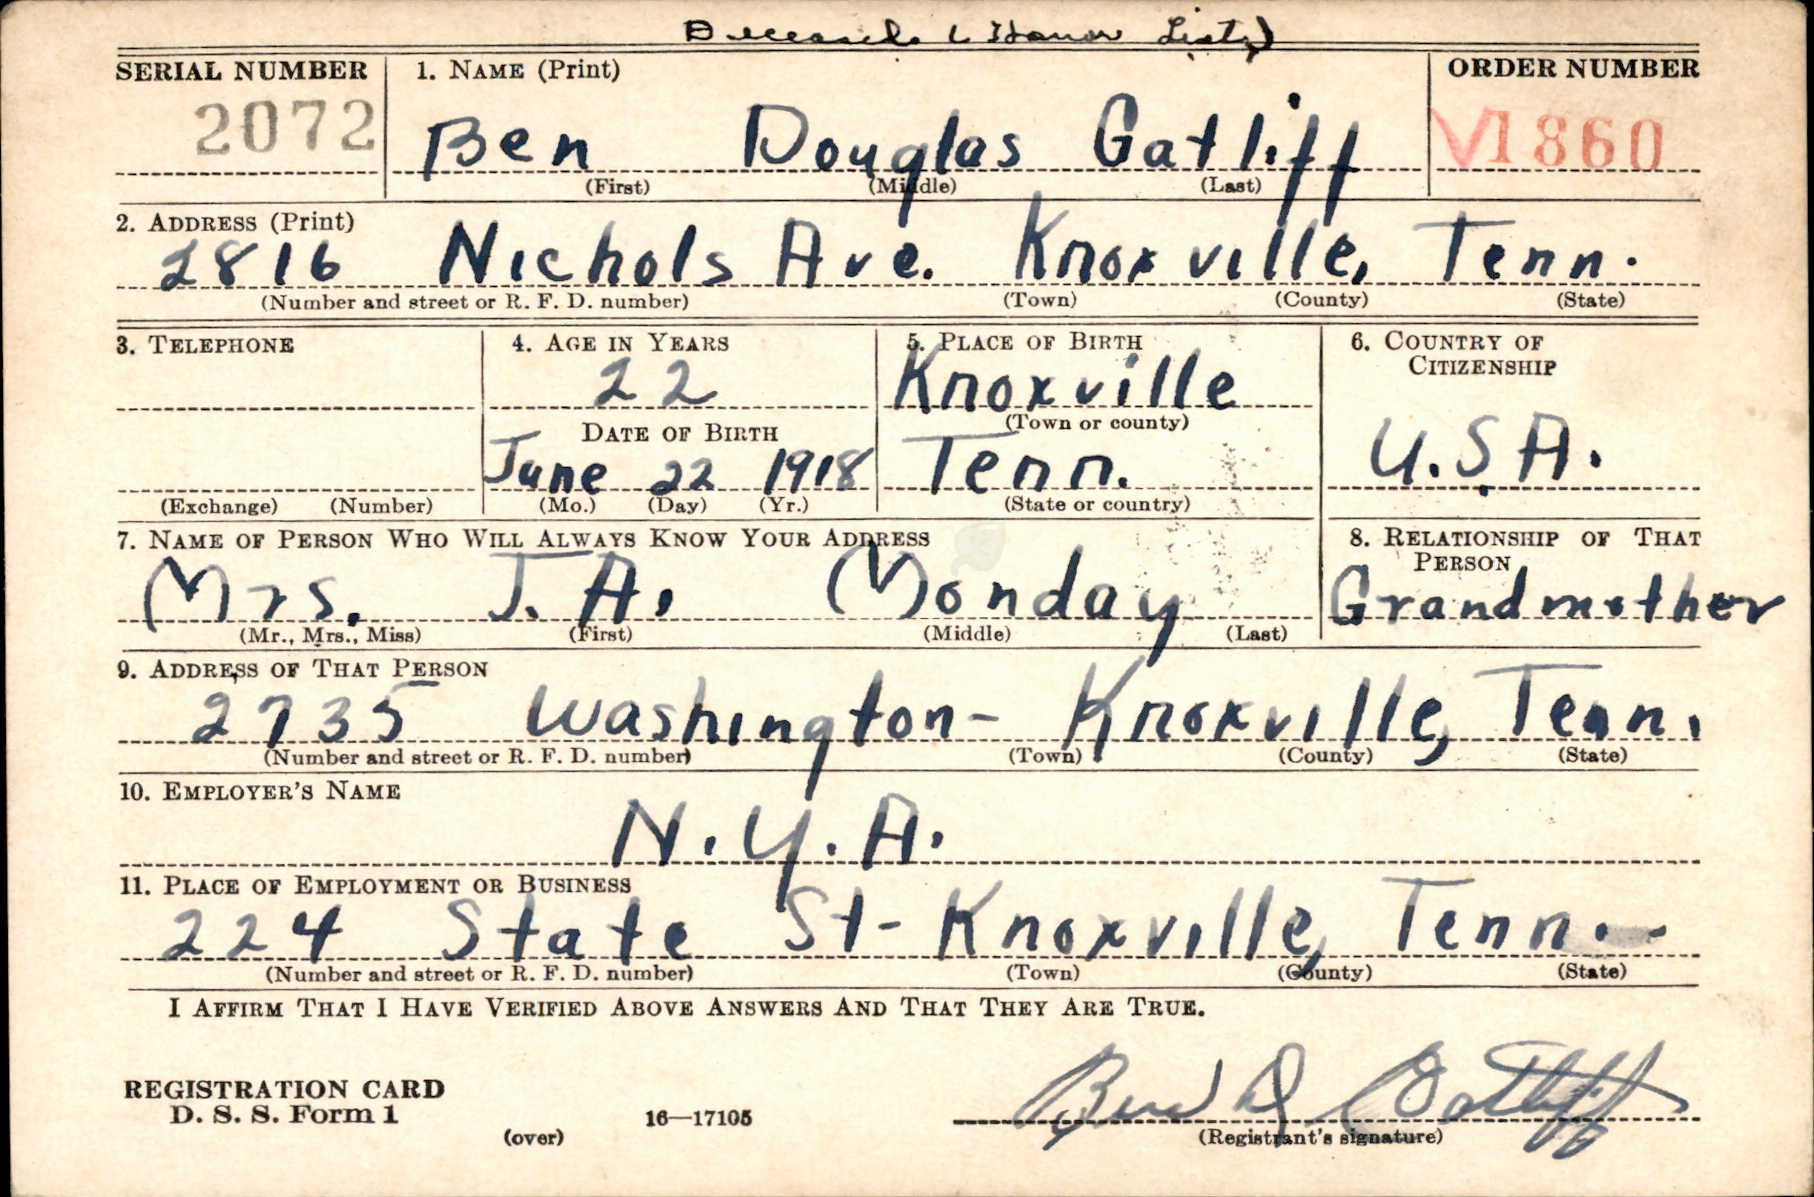 Deceased (Honor List)
SERIAL NUMBER 1. NAME (Print) ORDER NUMBER
2072 Ben Douglas Gatliff V1860
(First) (Middle) (Last)
2. ADDRESS (Print)
2816 Nichols Ave. Knoxville, Tenn.
(Number and street or R. F. D. number) (Town) (County) (State)
3. TELEPHONE 4. AGE IN YEARS 5. PLACE OF BIRTH 6. COUNTRY OF CITIZENSHIP
22 Knoxville
(Town or county)
DATE OF BIRTH
June 22 1918 Tenn. U.S.A.
(Exchange) (Number) (Mo.) (Day) (Yr.) (State or country)
7. NAME OF PERSON WHO WILL ALWAYS KNOW YOUR ADDRESS 8. RELATIONSHIP OF THAT PERSON
Mrs. J. A. Monday Grandmother
(Mr., Mrs., Miss) (First) (Middle) (Last)
9. ADDRESS OF THAT PERSON
2735 Washington- Knoxville, Tenn.
(Number and street or R. F. D. number) (Town) (County) (State)
10. EMPLOYER'S NAME
N.Y.A.
11. PLACE OF EMPLOYMENT OR BUSINESS
224 State St- Knoxville, Tenn.-
(Number and street or R. F. D. number) (Town) (County) (State)
I AFFIRM THAT I HAVE VERIFIED ABOVE ANSWERS AND THAT THEY ARE TRUE.
REGISTRATION CARD
D. S. S. Form 1 16—17105 Ben D Gatliff
(over) (Registrant's signature)